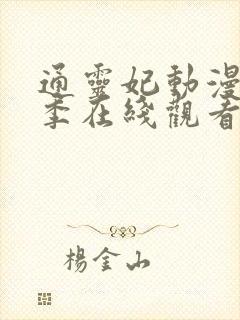 通靈妃動漫
季在綫觀看
楊金山